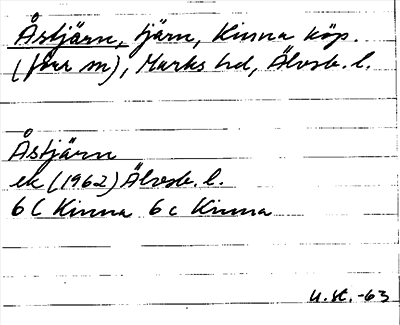 Åstjärn, tjärn, Kinna köp.
(förr sn), Marks hd, Älvsb. l.
Åstjärn
ek (1962) Älvsb. l.
6 C Kinna 6 c Kinna
U. st. -63